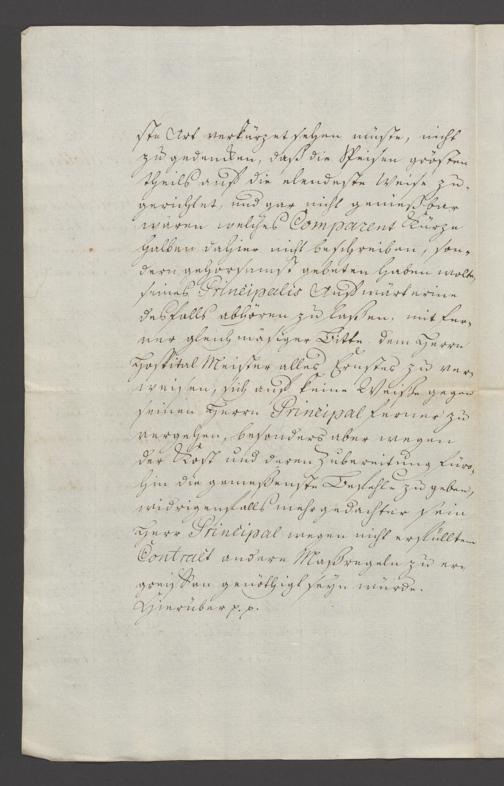 ste Art verkürzet sehen müste, nicht
zu gedencken, daß die Speisen grösten
theils auf die elendeste Weise zu-
gerichtet, und gar nicht genießbar
waren welches Comparent Kürze
halben dahier nicht beschreiben, son-
dern gehorsamst gebeten haben wolte,
seines Principalis Aufwärterinne
desfalls abhören zu lassen. mit fer-
ner gleichmäsiger Bitte dem Herrn
Hospital Meister alles Ernstes zu ver-
weisen, sich auf keine Weiße gegen
seinen Herrn Principal ferner zu
vergehen, besonders aber wegen
der Kost und deren Zubereitung fürs-
hin die gemeßenste Befehle zu geben,
widrigenfalls mehrgedachter sein
Herr Principal wegen nicht erfüllten
Contract andere Maßregeln zu er-
greiffen genöthigt seyn würde.
Hierüber p. p.